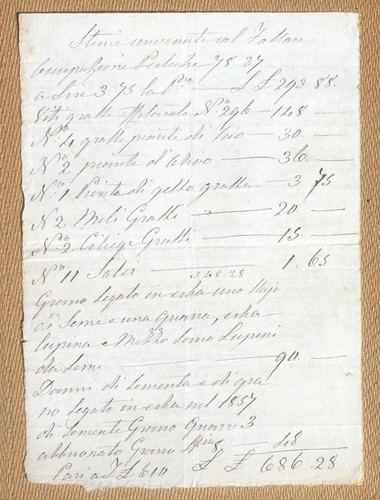 Stime convenute col Fattore
Pertiche 78.27
a Lire 3.75 la P.ca — £ 293 88.
Viti gratte N° 296 — 148 —
N° 4 gratte piante di — 30 —
N° 2 piante d'olivo — 36 —
N° 1 Pianta di gelso gratta — 3 75
N° 2 Meli Gratti — 20 —
N° 2 Ciliegi Gratti — 15 —
N° 11 Salci — 1.65
548.28
Grano segato in erba uno Stajo
di Seme e una Quarra, erba
lupina e Mezzo Seme Lupini
da Seme — 90. —
Danni di Sementa e di gra
no segato in erba nel 1857
di Semente Grano Quarre 3
abbuonato Grano 8 — 48
Pari a £ 610 £ 686.28